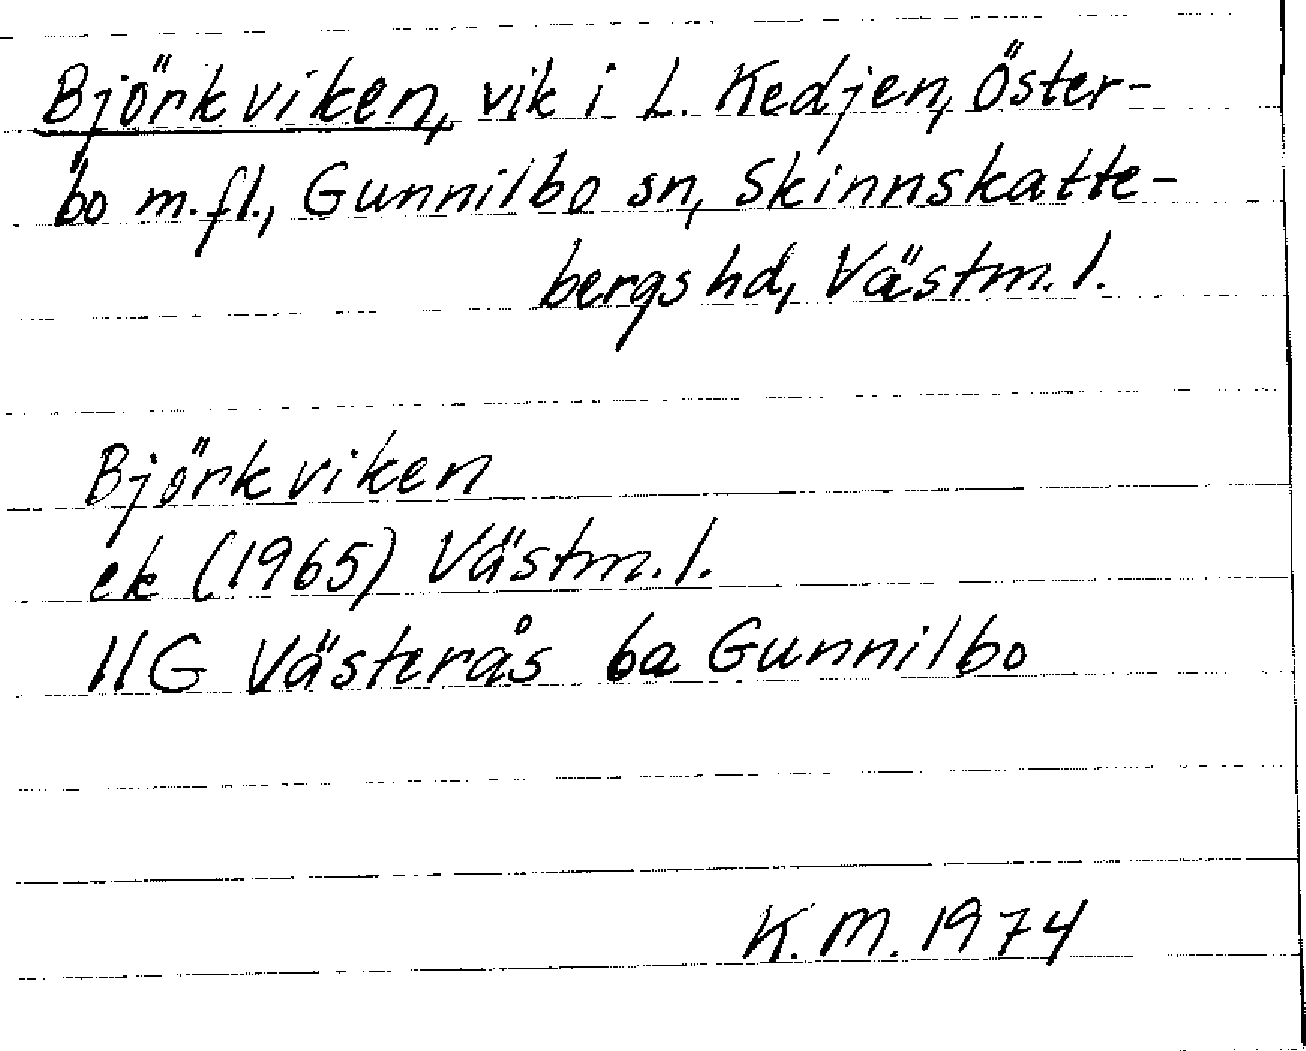 Björkviken, vik i L. Kedjen, Öster-
bo m.fl., Gunnilbo sn, Skinnskatte-
bergs hd, Västm. l.
Björkviken
ek (1965) Västm. l.
11G Västerås 6a Gunnilbo
K.M. 1974